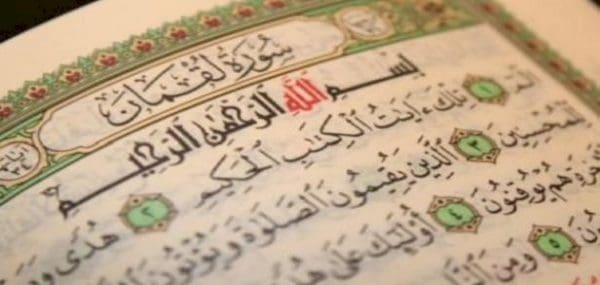 سُورَةُ لُقْمَانَ
بِسْمِ ٱللَّهِ ٱلرَّحْمَٰنِ ٱلرَّحِيمِ
الٓمٓ ١ تِلْكَ ءَايَٰتُ ٱلْكِتَٰبِ ٱلْحَكِيمِ ٢ هُدًى
لِّلْمُحْسِنِينَ ٣ ٱلَّذِينَ يُقِيمُونَ ٱلصَّلَوٰةَ وَيُؤْتُونَ
هُمْ يُوقِنُونَ ٤ أُو۟لَٰٓئِكَ عَلَىٰ هُدًى
٥ وَمِنَ